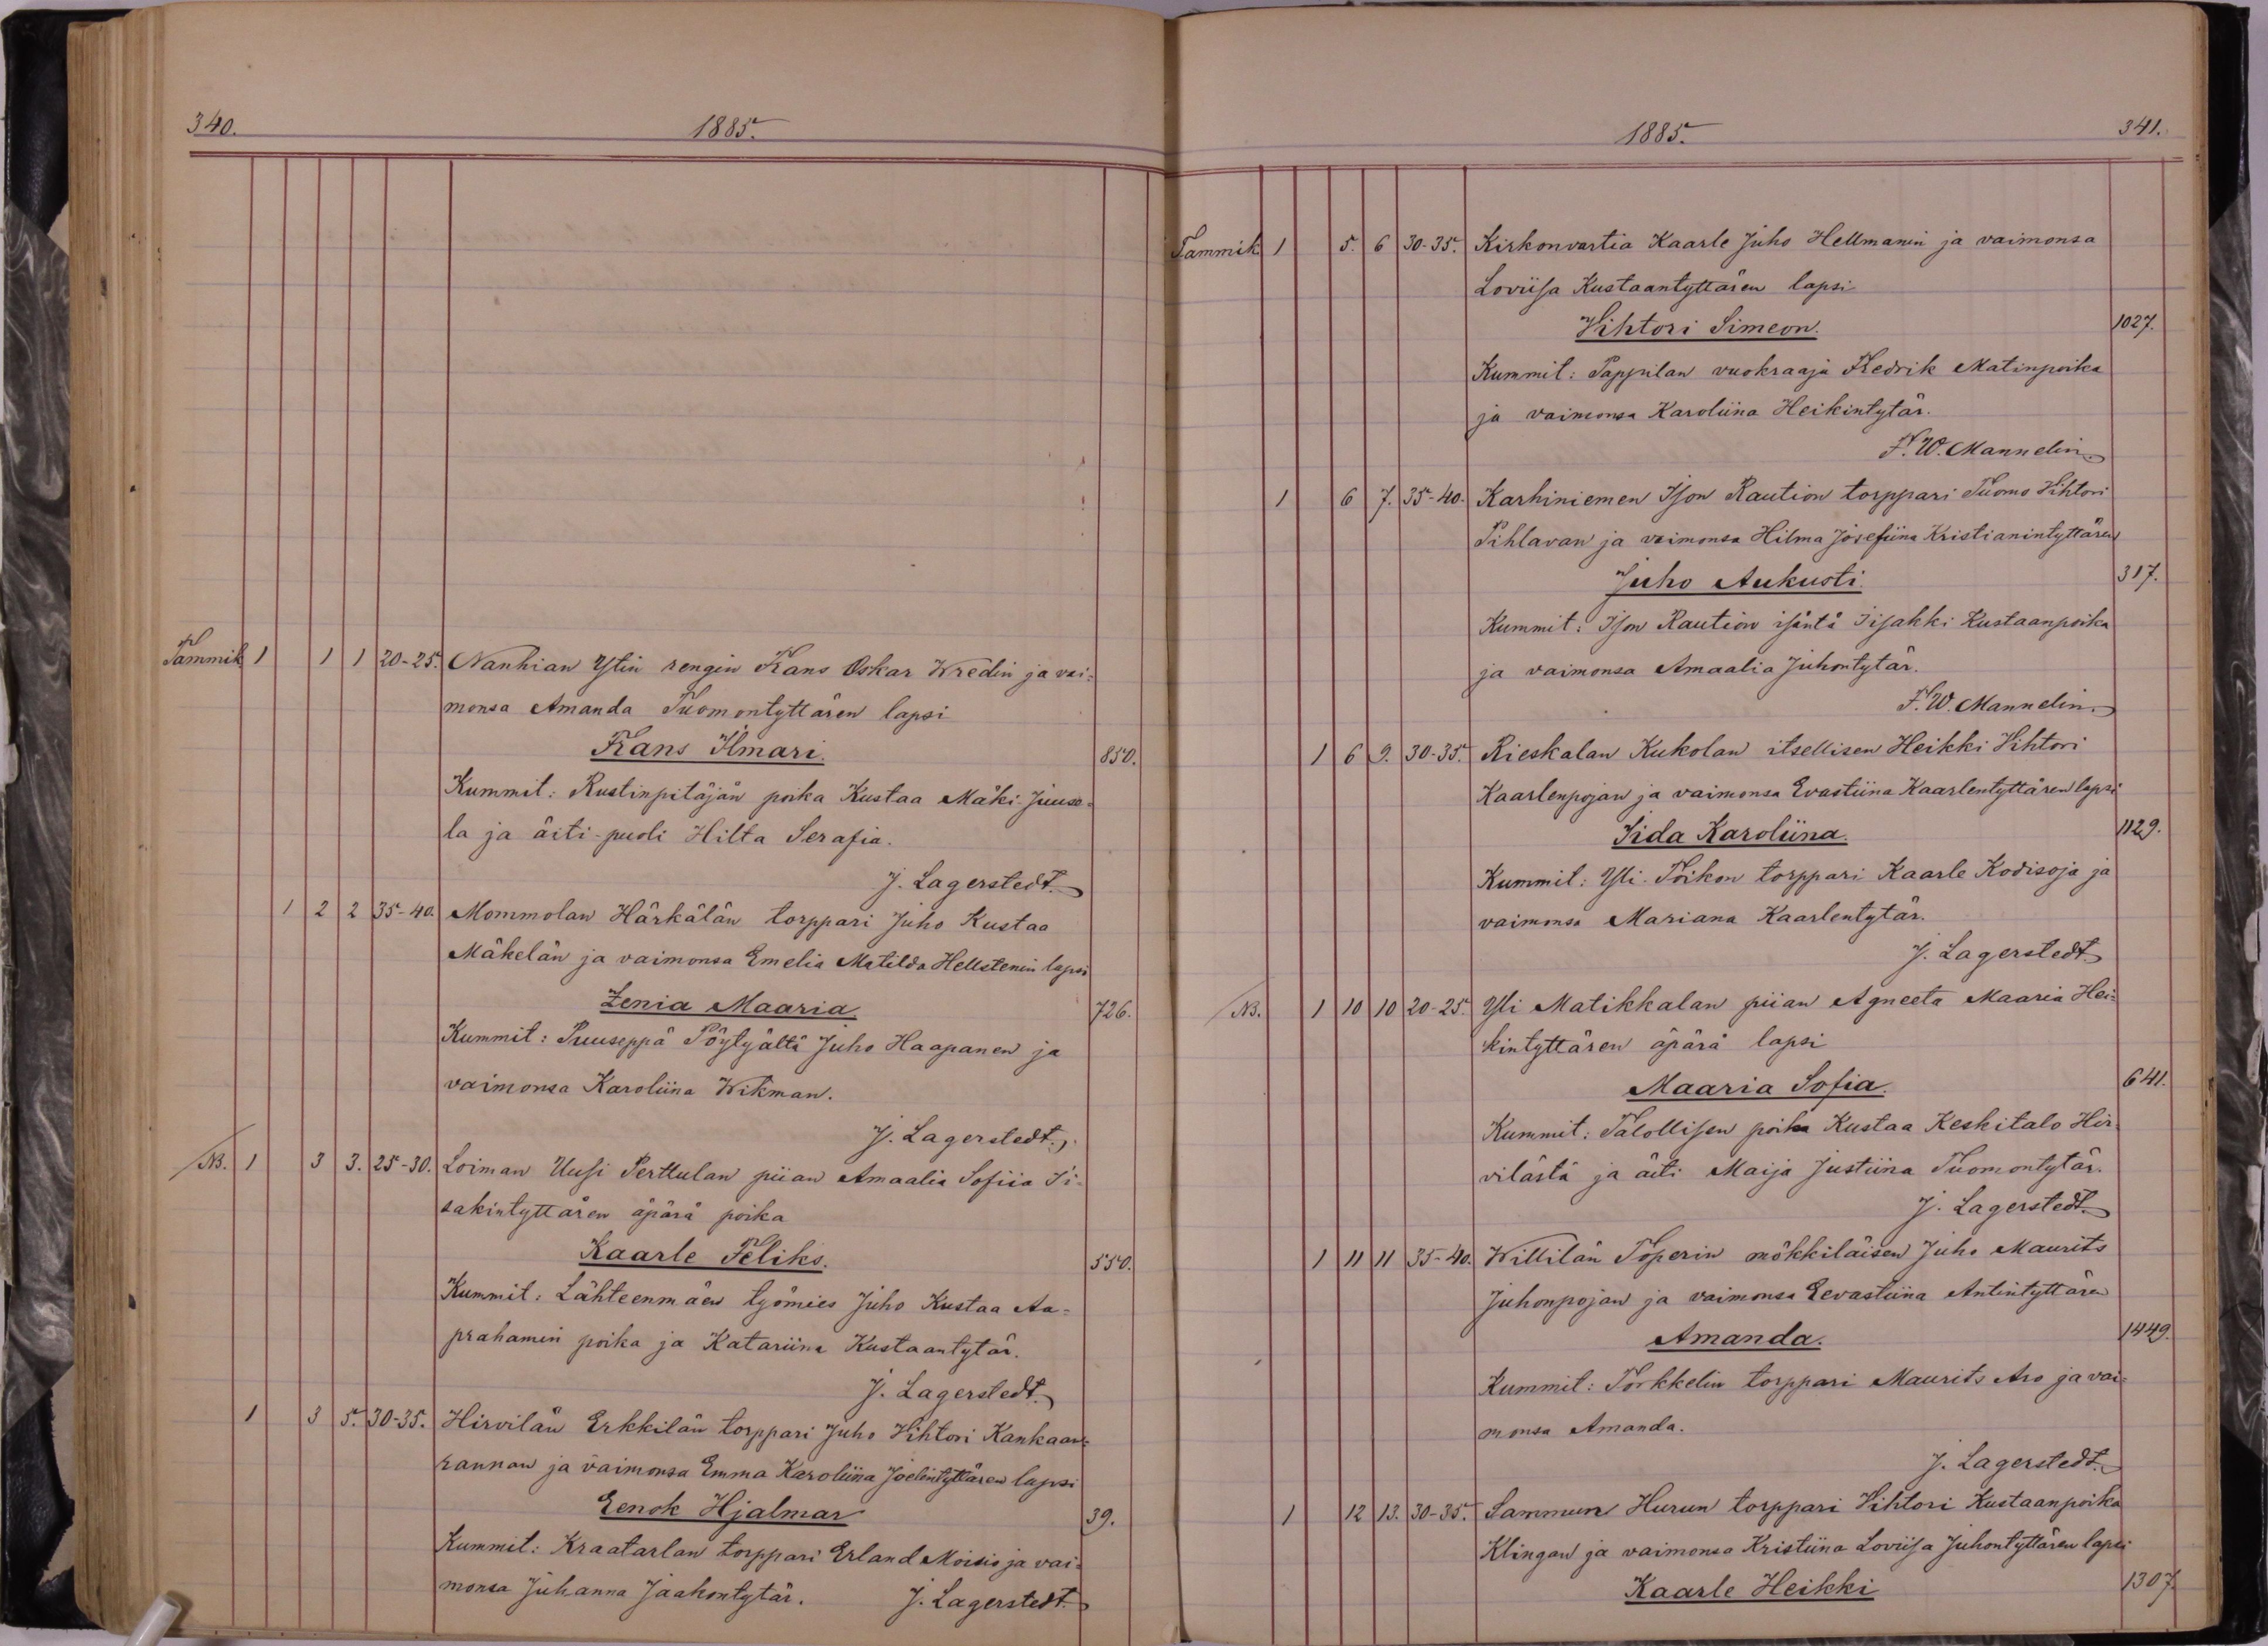 340. 1885.
Tammik 1 1 1 20-25. Nanhian Ylin rengin Frans Oskar Wredin ja vai=
monsa Amanda Tuomontyttären lapsi
Frans Ilmari. 850.
Kummit: Rustinpitäjän poika Kustaa Mäki-Juuso=
la ja äiti-puoli Hilta Serafia.
J. Lagerstedt.
1 2 2 35-40. Mommolan Härkälän torppari Juho Kustaa
Mäkelän ja vaimonsa Emelia Matilda Hellstenin lapsi
Zenia Maaria 726.
Kummit: Puuseppä Pöytyältä Juho Haapanen ja
vaimonsa Karoliina Wikman.
J. Lagerstedt.
NB. 1 3 3. 25-30. Loiman Uusi Perttulan piian Amaalia Sofiia Ii=
sakintyttären äpärä poika
Kaarle Feliks. 550.
Kummit: Lähteenmäen työmies Juho Kustaa Aa=
prahamin poika ja Katariina Kustaantytär.
J. Lagerstedt.
1 3 5. 30-35. Hirvilän Erkkilän torppari Juho Vihtori Kankaan=
rannan ja vaimonsa Emma Karoliina Joelintyttären lapsi
Eenok Hjalmar 39.
Kummit: Kraatarlan torppari Erland Moisio ja vai=
monsa Juhanna Jaakontytär. J. Lagerstedt.
1885. 341.
Tammik 1 5. 6 30-35. Kirkonvartia Kaarle Juho Hellmanin ja vaimonsa
Loviisa Kustaantyttären lapsi
Vihtori Simeon. 1027.
Kummit: Pappilan vuokraaja Fredrik Matinpoika
ja vaimonsa Karoliina Heikintytär.
F. W. Mannelin.
1 6 7. 35-40. Karhiniemen Ison Raution torppari Tuomo Vihtori
Pihlavan ja vaimonsa Hilma Josefiina Kristianintyttären
Juho Aukusti. 317.
Kummit: Ison Raution isäntä Iisakki Kustaanpoika
ja vaimonsa Amaalia Juhontytär.
F. W. Mannelin.
1 6 9. 30-35. Rieskalan Kukolan itsellisen Heikki Vihtori
Kaarlenpojan ja vaimonsa Evastiina Kaarlentyttären lapsi
Iida Karoliina. 1129.
Kummit: Yli-Toikon torppari Kaarle Kodisoja ja
vaimonsa Mariana Kaarlentytär.
J. Lagerstedt
NB. 1 10 10 20-25. Yli Matikkalan piian Agneeta Maaria Hei=
kintyttären äpärä lapsi
Maaria Sofia. 641.
Kummit: Talollisen poika Kustaa Keskitalo Hir=
vilästä ja äiti Maija Justiina Tuomontytär.
J. Lagerstedt.
1 11 11 35-40. Willilän Toperin mökkiläisen Juho Maurits
Juhonpojan ja vaimonsa Eevastiina Antintyttären
Amanda. 1449.
Kummit: Torkkelin torppari Maurits Aro ja vai=
monsa Amanda.
J. Lagerstedt.
1 12 13. 30-35. Sammun Hurun torppari Vihtori Kustaanpoika
Klingan ja vaimonsa Kristiina Loviisa Juhontyttären lapsi
Kaarle Heikki 1307